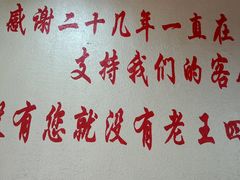 感谢二十几年一直在
支持我们的客
有您就没有老王四